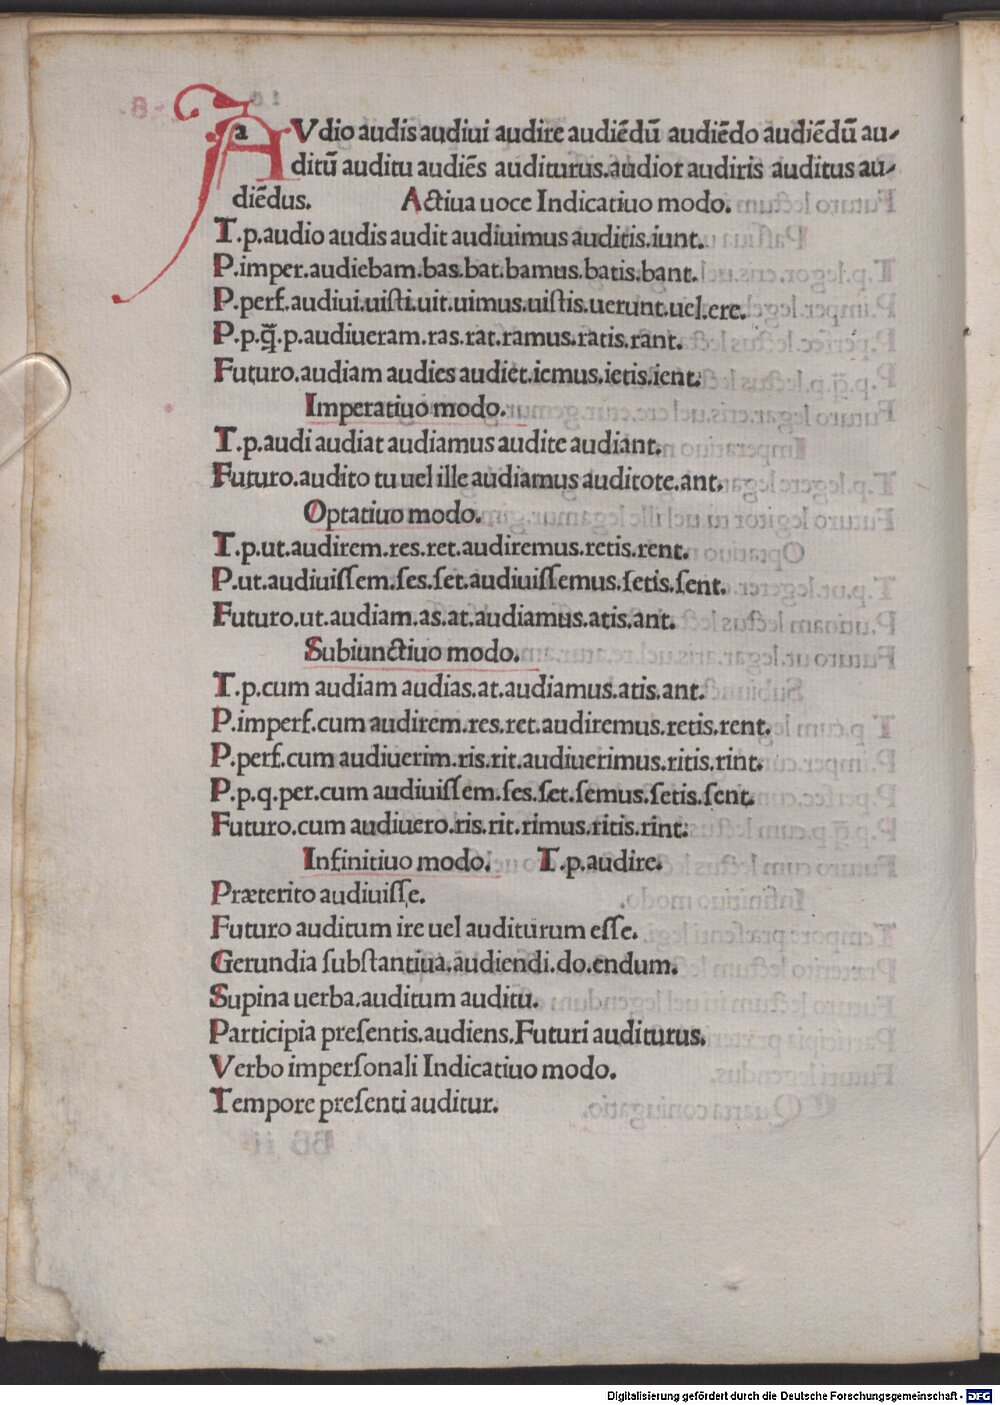 AVdio audis audiui audire audiēdū audiēdo audiēdū au-
ditū auditu audiēs auditurus.audior audiris auditus au-
diēdus. Actiua uoce Indicatiuo modo.
T.p.audio audis audit audiuimus auditis.iunt.
P.imper.audiebam.bas.bat.bamus.batis.bant.
P.perf.audiui.uiſti.uit.uimus.uiſtis.uerunt.uel.ere.
P.p.q̄.p.audiueram.ras.rat.ramus.ratis.rant.
Futuro.audiam audies audiet.iemus.ietis.ient.
Imperatiuo modo.
T.p.audi audiat audiamus audite audiant.
Futuro.audito tu uel ille audiamus auditote.ant.
Optatiuo modo.
T.p.ut.audirem.res.ret.audiremus.retis.rent.
P.ut.audiuiſſem.ſes.ſet.audiuiſſemus.ſetis.ſent.
Futuro.ut.audiam.as.at.audiamus.atis.ant.
Subiunctiuo modo.
T.p.cum audiam audias.at.audiamus.atis.ant.
P.imperf.cum audirem.res.ret.audiremus.retis.rent.
P.perf.cum audiuerim.ris.rit.audiuerimus.ritis.rint.
P.p.q.per.cum audiuiſſem.ſes.ſet.ſemus.ſetis.ſent.
Futuro.cum audiuero.ris.rit.rimus.ritis.rint.
Infinitiuo modo. T.p.audire.
Præterito audiuiſſe.
Futuro auditum ire uel auditurum eſſe.
Gerundia ſubſtantiua.audiendi.do.endum.
Supina uerba.auditum auditu.
Participia preſentis.audiens.Futuri auditurus.
Verbo imperſonali Indicatiuo modo.
Tempore preſenti auditur.
Digitalisierung gefördert durch die Deutsche Forschungsgemeinschaft - DFG